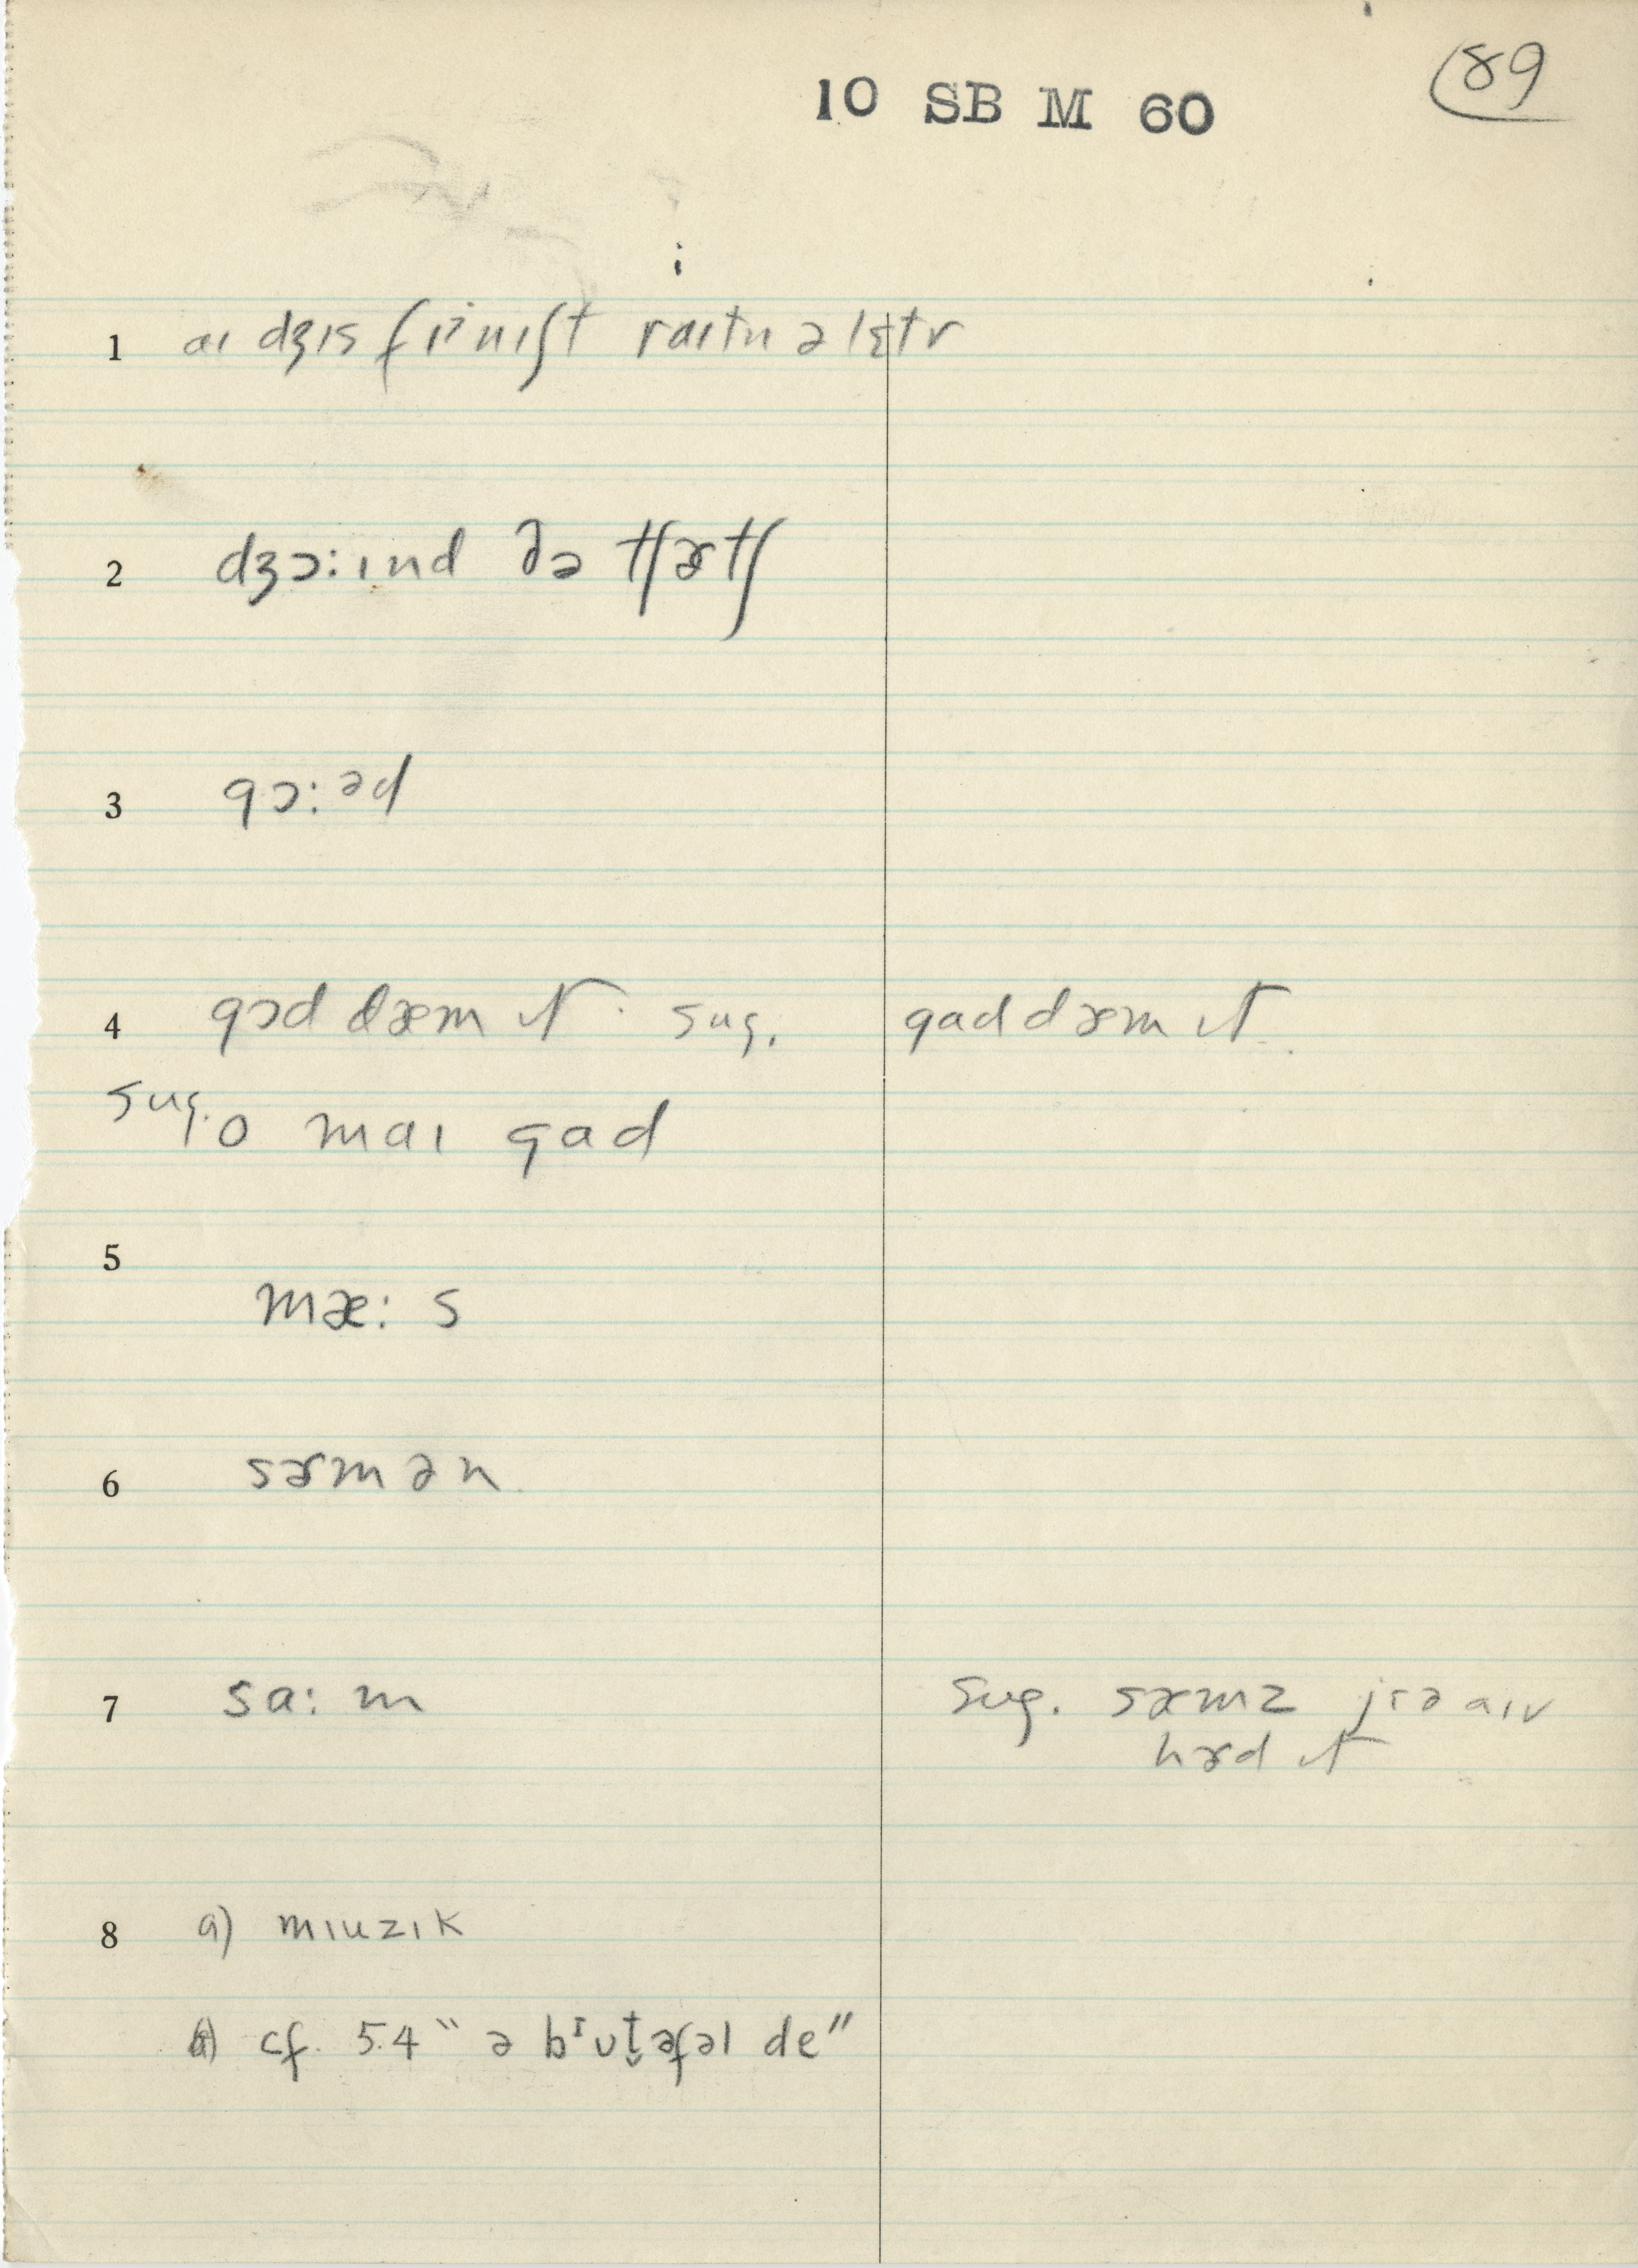 89
10 SB M 60
1 aɪ dʒɪs fɪnɪʃt raɪtn ə lɛtr
2 dʒɔ:ɪnd ðə tʃɚtʃ
3 gɔ:əd
4 gɔd dæm ɪt sug. gad dæm ɪt
sug. o maɪ gad
5
mæ: s
6 sɚmən
7 sa: m sug. sæmz jɪə aɪv
hɚd ɪt
8 a) mɪuzɪk
cf. 5.4 “ ə bɪut̬əfəl de ”